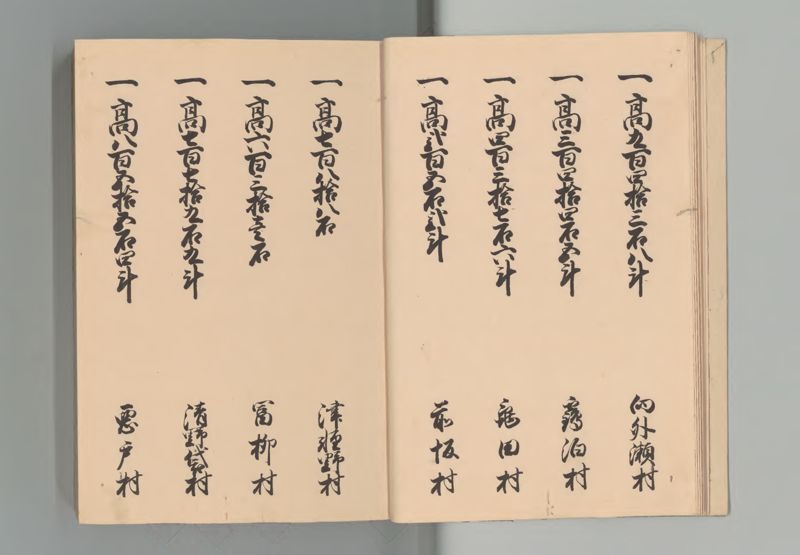 一高九百四拾三石八斗 向外瀬村
一高三百四拾四石五斗 靏泊村
一高四百三拾七石六斗 亀田村
一高弐百五石弐斗 前坂村
一高七百八拾八石 津軽野村
一高六百三拾壱石 冨柳村
一高七百七拾九石九斗 清野袋村
一高八百五拾五石四斗 悪戸村